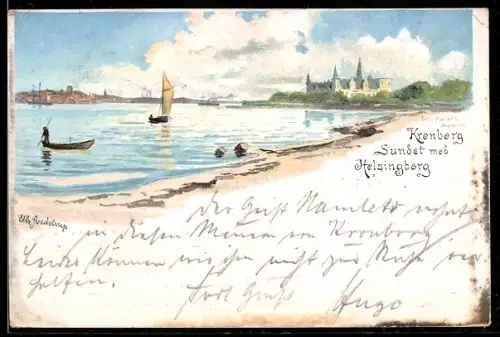 Kronborg
Sundet med
Helsingborg
Der Geist Hamlets
in diesen Mauern von Kronborg
Leider können wir ihn nicht zur Ruhe
helfen. Gruß Hugo